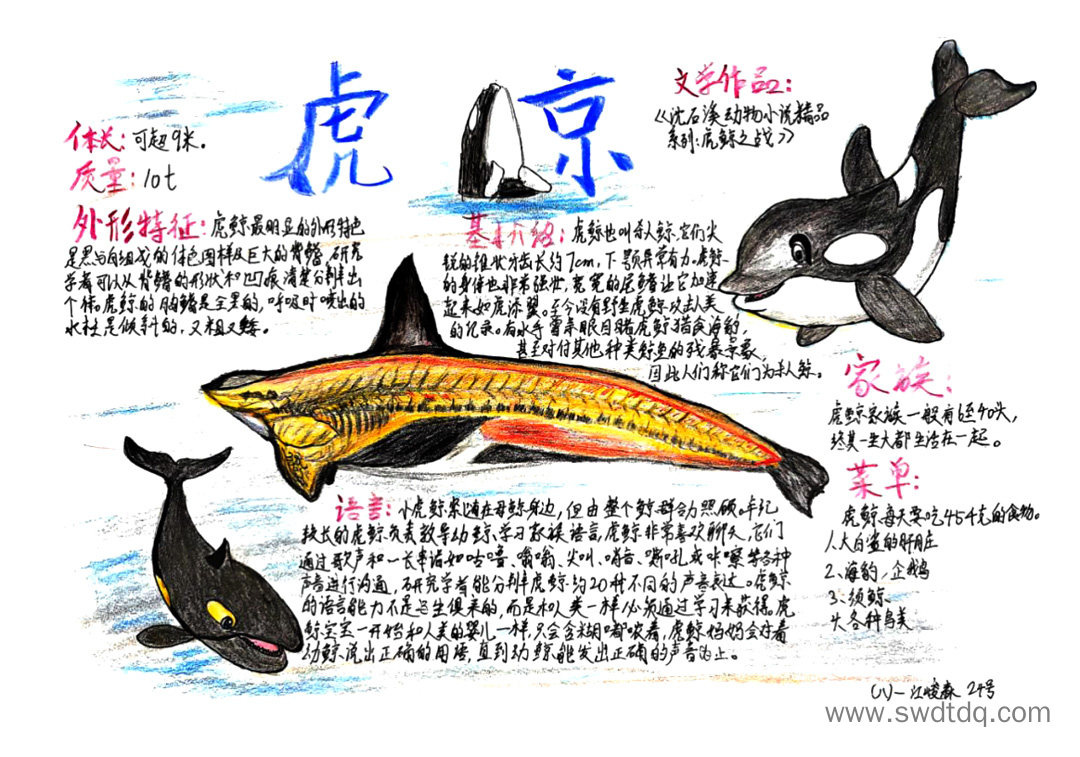 虎京
体长：可超9米。
质量：10t
外形特征：虎鲸最明显的外形特色
是黑与白组成的体色图样及巨大的背鳍，研究
学者可以从背鳍的形状和凹痕清楚分辨出
个体。虎鲸的胸鳍是全黑的，呼吸时喷出的
水柱是倾斜的，又粗又矮。
文学作品：
《沈石溪动物小说精品
系列：虎鲸之战》
基本介绍：虎鲸也叫杀人鲸，它们尖
锐的锥状牙齿长约7cm，下颚异常有力。虎鲸
的身体也非常强壮，宽宽的尾鳍让它加速
起来如虎添翼。至今没有野生虎鲸攻击人类
的纪录。有水手曾亲眼目睹虎鲸猎食海豹，
甚至对付其他种类鲸鱼的残暴景象，
因此人们称它们为杀人鲸。
家族：
虎鲸家族一般有6至40头，
终其一生大都生活在一起。
菜单：
虎鲸每天要吃454克的食物。
1、大白鲨的肝脏
2、海豹，企鹅
3、须鲸
4、各种鸟类
语言：小虎鲸紧随在母鲸身边，但由整个鲸群合力照顾。年纪
较长的虎鲸负责教导幼鲸，学习家族语言，虎鲸非常喜欢聊天，它们
通过歌声和一长串诸如咕噜、嗡嗡、尖叫、哨音、嘶吼或咔嚓等各种
声音进行沟通，研究学者能分辨虎鲸约20种不同的声音表达。虎鲸
的语言能力不是与生俱来的，而是和人类一样必须通过学习来获得。虎
鲸宝宝一开始和人类的婴儿一样，只会含糊嘟哝着，虎鲸妈妈会对着
幼鲸说出正确的用语，直到幼鲸能发出正确的声音为止。
(八)一 江峻森 24号
www.swdtdq.com